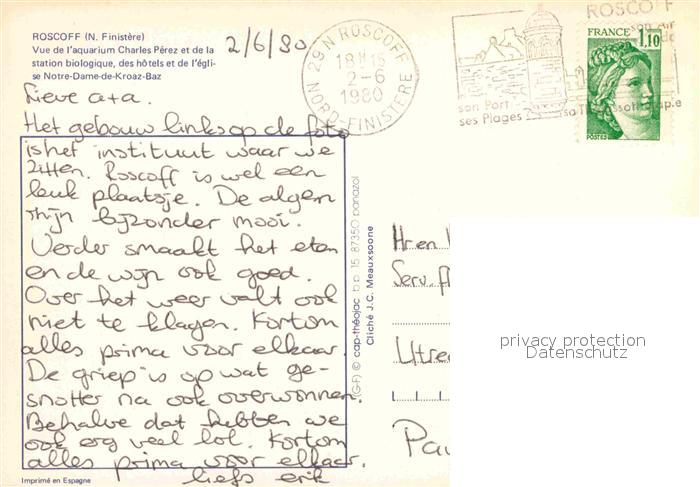 ROSCOFF (N. Finistère)
Vue de l'aquarium Charles Pérez et de la
station biologique, des hôtels et de l'égli-
se Notre-Dame-de-Kroaz-Baz
2/6/80
29 N ROSCOFF
18H15
2-6
1980
NORD-FINISTERE
ROSCOFF
son Port
ses Plages
FRANCE
1,10
POSTES
Lieve a+a.
Het gebouw links op de foto
is het instituut waar we
zitten. Roscoff is wel een
leuk plaatsje. De algen
zijn bijzonder mooi.
Verder smaakt het eten
en de wijn ook goed.
Over het weer valt ook
niet te klagen. Kortom
alles prima voor elkaar.
De griep is op wat ge-
snotter na ook overwonnen.
Behalve dat hebben we
ook erg veel lol. Kortom
alles prima voor elkaar.
liefs erik
Imprimé en Espagne
(G-F) © cap-théojac b.p. 15 87350 panazol
Cliché J.C. Meauxsoone
Hr en
Serv. fl
Utre
Pa
privacy protection
Datenschutz